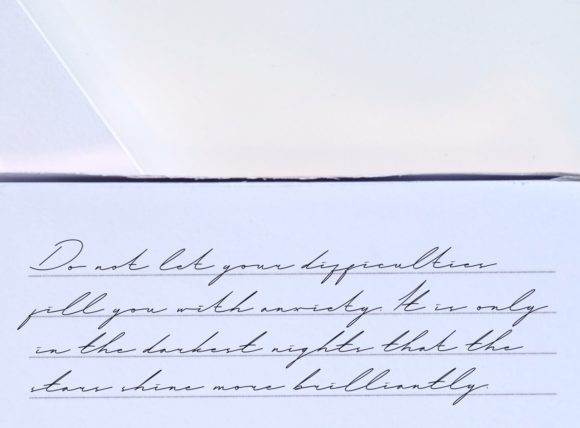 Do not let your difficulties
fill you with anxiety. It is only
in the darkest nights that the
stars shine more brilliantly.